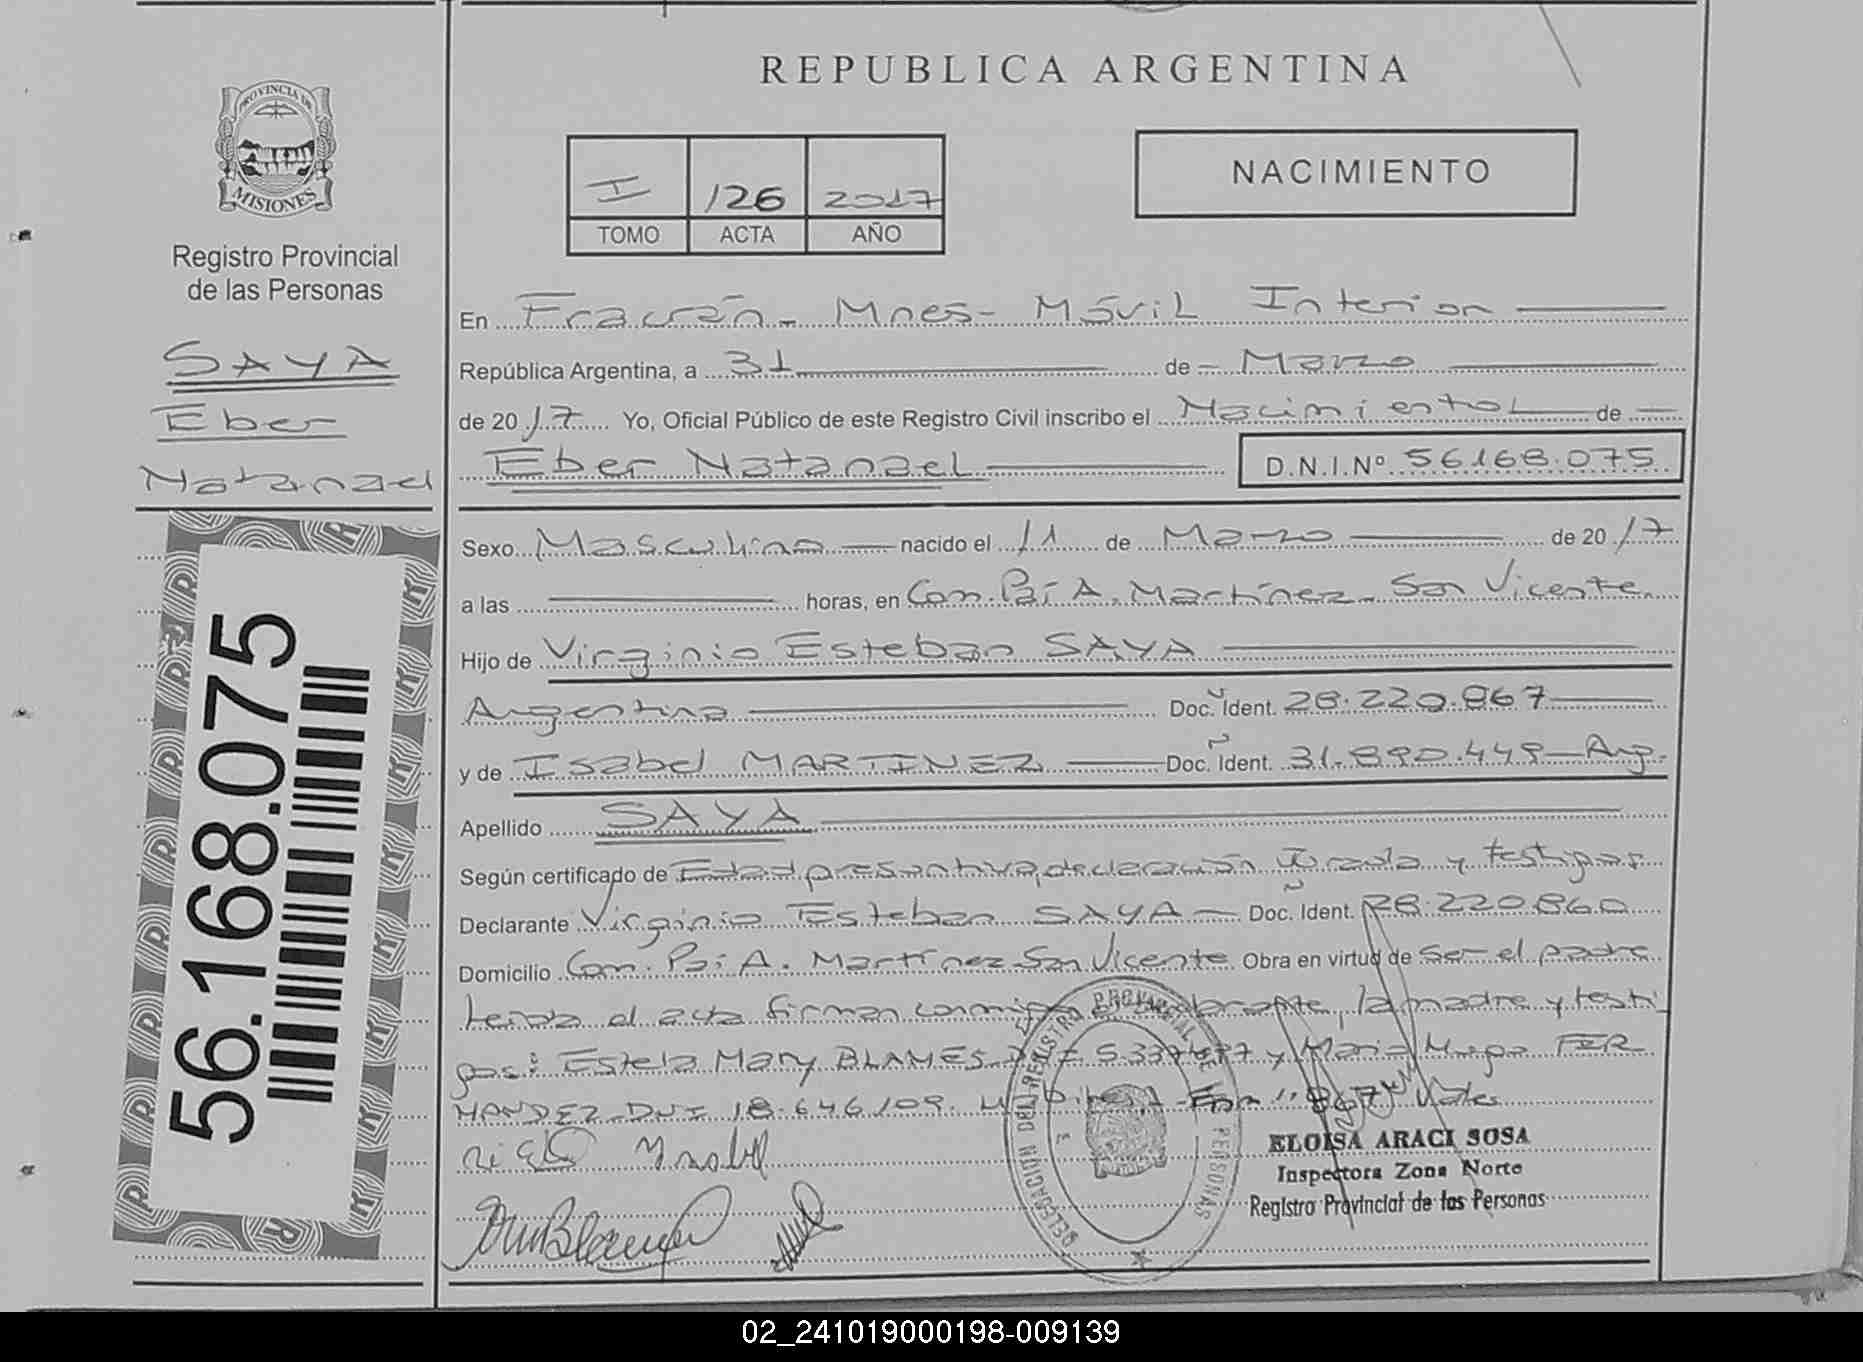 REPUBLICA ARGENTINA
PROVINCIA DE
MISIONES
Registro Provincial
de las Personas
SAYA
Eber
Natanael
56.168.075
I 126 2017
TOMO ACTA AÑO
NACIMIENTO
En Fracrán - Mnes - Móvil Interior
República Argentina, a 31 de Marzo
de 2017 Yo, Oficial Público de este Registro Civil inscribo el Nacimiento de
Eber Natanael D.N.I.Nº 56.168.075
Sexo Masculino nacido el 11 de Marzo de 2017
a las horas, en Com. Paí A. Martínez - San Vicente
Hijo de Virginio Esteban SAYA
Argentina Doc. Ident. 28.220.867
y de Isabel MARTINEZ Doc. Ident. 31.890.449 - Arg.
Apellido SAYA
Según certificado de Edad presuntiva, declaración Jurada y testigos
Declarante Virginio Esteban SAYA Doc. Ident. 28.220.860
Domicilio Com. Paí A. Martínez San Vicente Obra en virtud de ser el padre
leída el acta firman conmigo la madre y testi
gos: Estela Mary BLANES y Mario Hugo FER
NANDEZ DNI 18.646.109. "867" Vale
DELEGACIÓN DEL REGISTRO PROVINCIAL DE LAS PERSONAS
ELOISA ARACI SOSA
Inspectora Zona Norte
Registro Provincial de las Personas
02_241019000198-009139